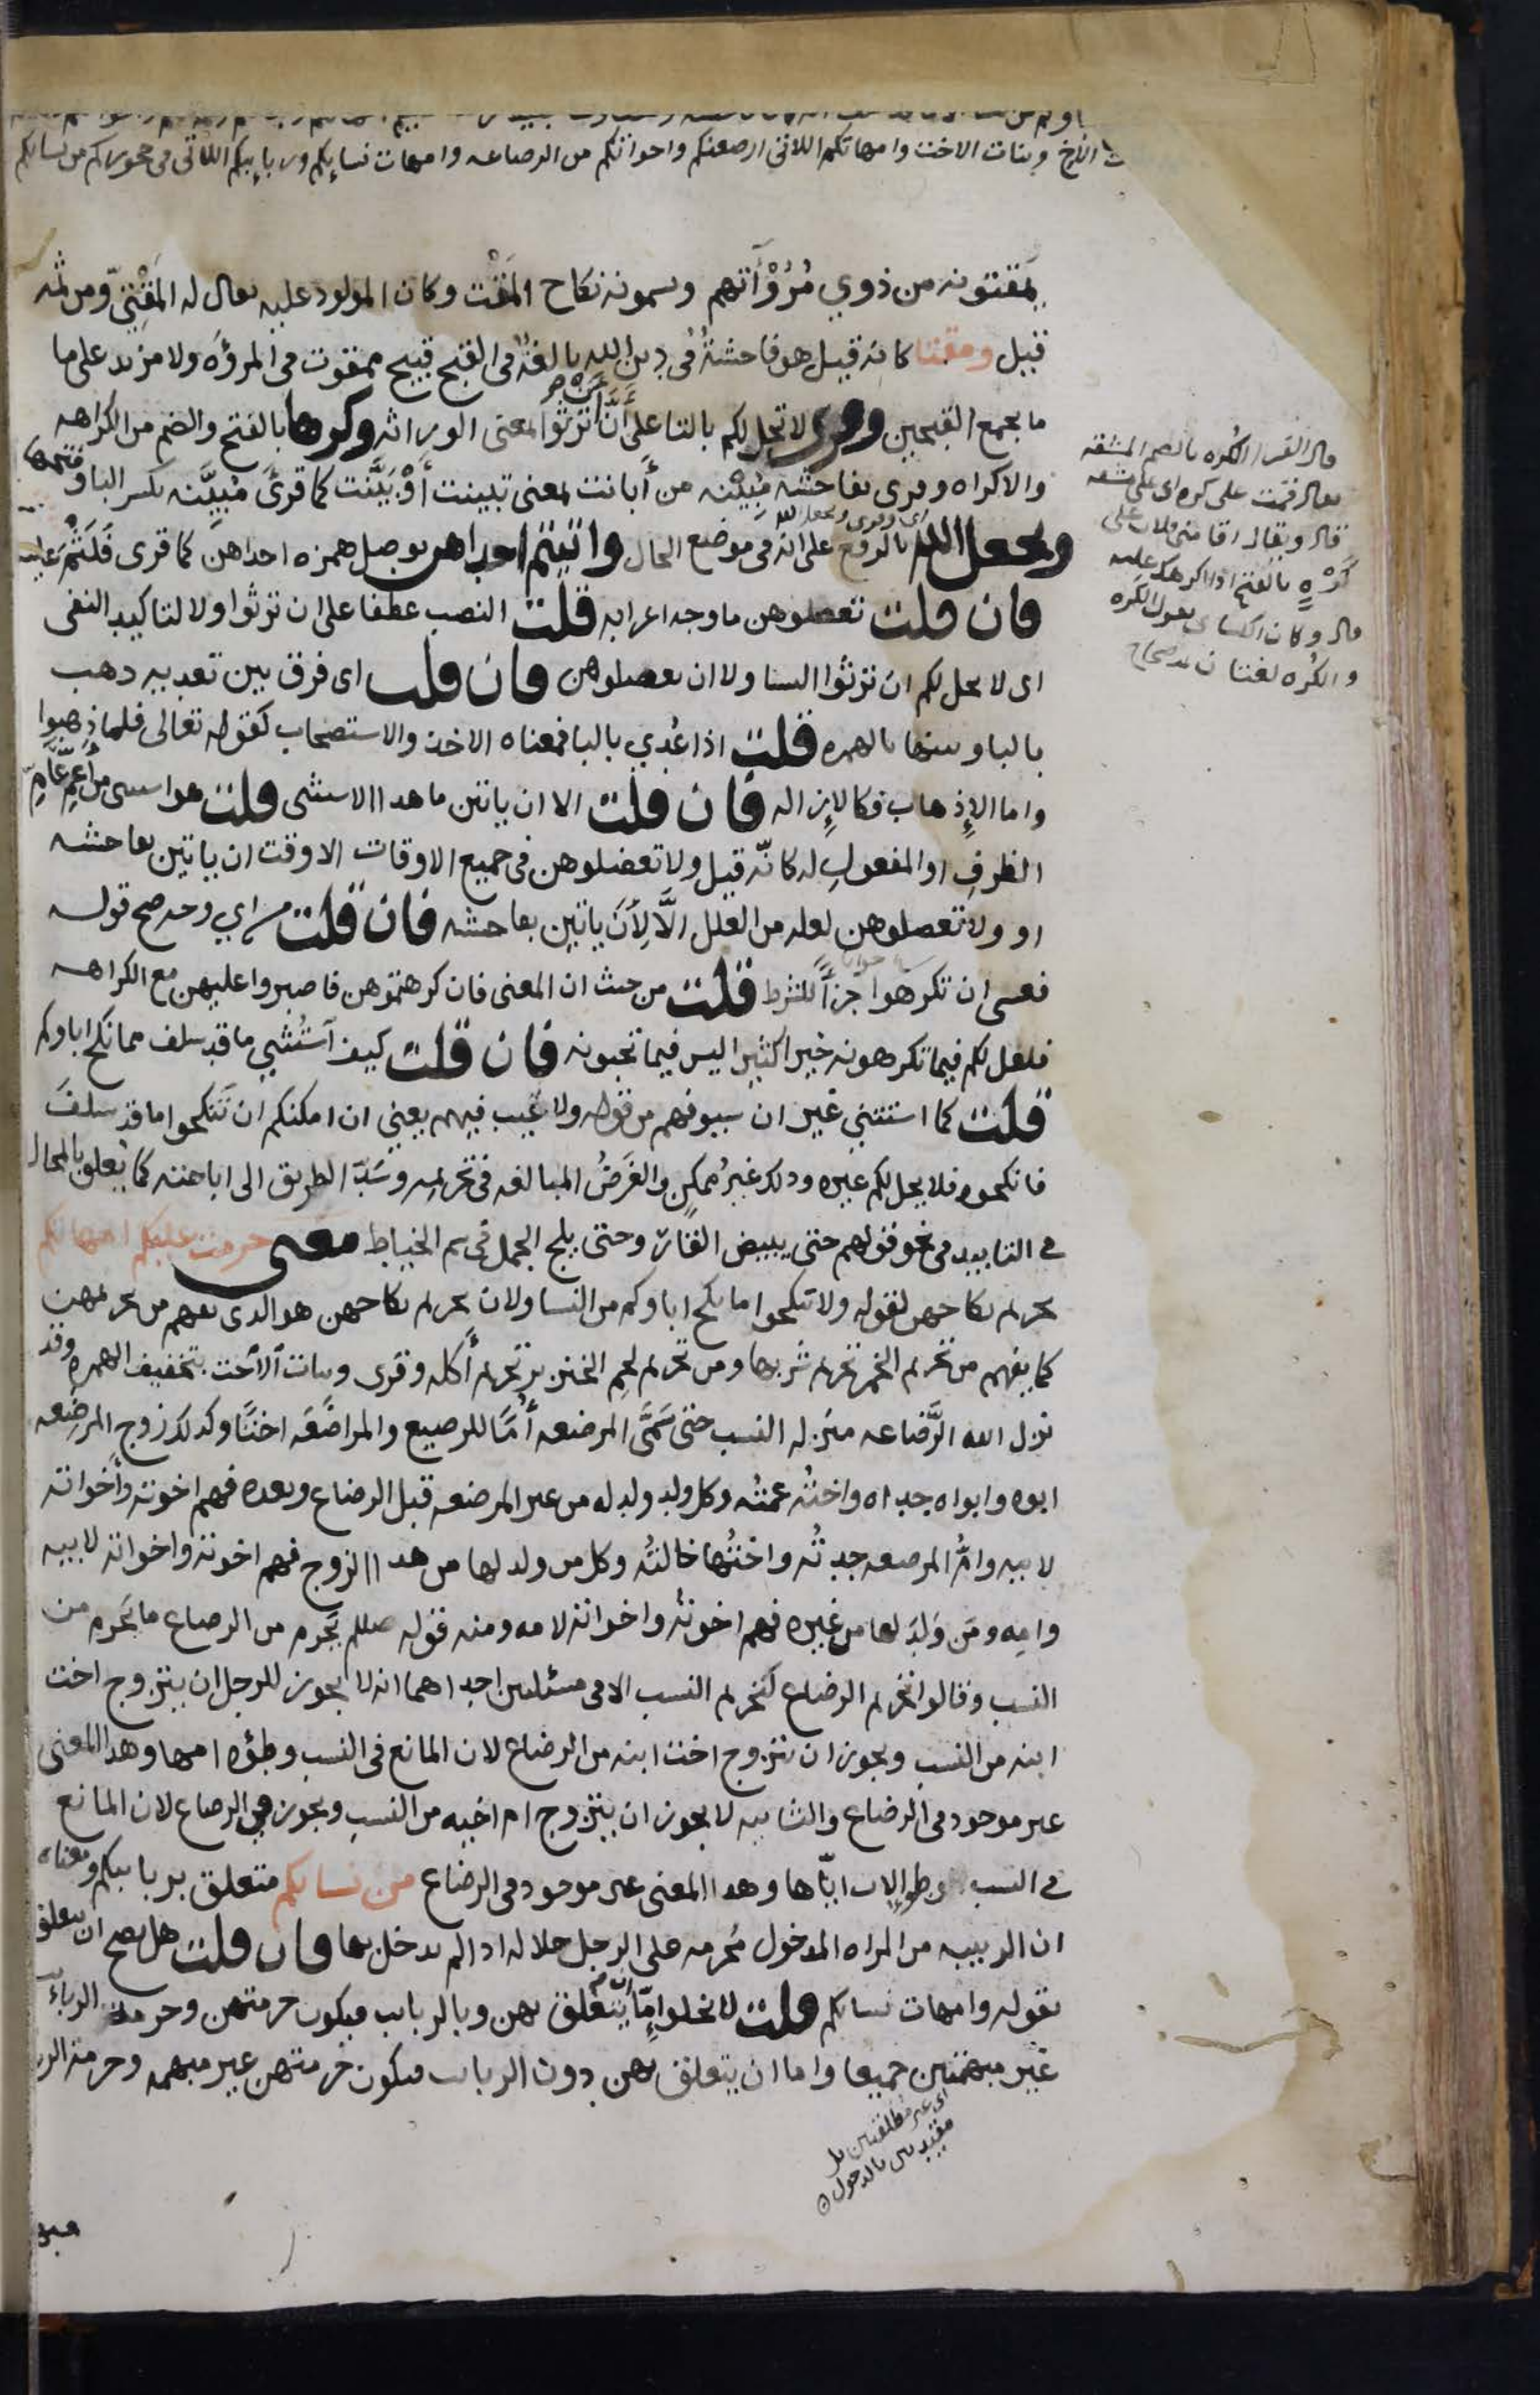 الاخ وبنات الاخت وامهاتكم اللاتي ارضعنكم واخواتكم من الرضاعه وامهات نسايكم وربايبكم اللاتي في حجوركم من نسايكم
يمقتونه من ذوي مُرُوْآتهم ويسمونه نكاح المَقْت وكان المولود عليه يقال له المَقْتِيّ ومن ثمه
قيل ومقتا كانه قيل هو فاحشةٌ في دين الله بالغةٌ في القبح قبيح ممقوت في المروَّه ولا مزيد على ما
ما يجمع القبيحين وقرى لا تحل لكم بالتا على أَنّ ترثوا بمعنى الوراثه وكرها بالفتح والضم من الكراهه
والاكراه وقرى بفاحشة مُبِيْنه من أبانت بمعنى تبينت أوْ بَيَّنت كما قرىَ مُبيَّنه بكسر اليا وفتحها
ويجعل الله بالرفع على انه في موضع الحال واتيتم احداهن بوصل همزه احداهن كما قرى فَلَثْمَ عليه
فان قلت تعضلوهن ما وجه اعرابه قلت النصب عطفا على ان ترثوا ولا لتاكيد النفى
اى لا يحل لكم ان ترثوا النسا ولا ان تعضلوهن فان قلت اى فرق بين تعديه ذهب
بالبا وبينها بالهمزه قلت اذا عُدي بالبا فمعناه الاخذ والاستصحاب كقوله تعالى فلما ذهبوا
واما الإذهاب فكالإزاله فان قلت الا ان ياتين ما هذا الاستثنى قلت هو استثنى من أعمِّ عامِّ
الظرفِ او المفعولِ له كانّه قيل ولا تعضلوهن في جميع الاوقات الا وقت ان ياتين بفاحشه
او ولا تعضلوهن لعله من العلل الَّا لِأنَ ياتين بفاحشه فان قلت من اي وجه صح قوله
فعسى ان تكرهوا جزآً للشرط قلت من حيث ان المعنى فان كرهتموهن فاصبروا عليهن مع الكراهه
فلعل لكم فيما تكرهونه خيرا كثيرا ليس فيما تحبونه فان قلت كيف اَستُثنِي ما قد سلف مما نكح اباوكم
قلت كما استثنى غير ان سيوفهم من قوله ولا عيب فيهم يعني ان امكنكم ان تَنكحوا ما قد سلفَ
فانكحوه فلا يحل لكم غيره وذلك غيرُ ممكنٍ والغَرَضُ المبالغه في تحريمه وسَدّ الطريق الى اباحته كما يُعلق بالمحال
في التابيد في نحو قولهم حتى يبيض القَار وحتى يلج الجمل في سم الخياط معنى حرمت عليكم امهاتكم
تحريم نكاحهن لقوله ولا تنكحوا ما نكح اباوكم من النسا ولان تحريم نكاحهن هو الذى يفهم من تحريمهن
كما يفهم من تحريم الخمر تحريم شربها ومن تحريم لحم الخنزير تحريم أكله وقرى وبنات الاَخت بتخفيف الهمزه وقد
نزل الله الرَّضاعه منزله النسب حتى سَمَّى المرضعه أُمًّا للرضيع والمراضَعَه اختًا وكذلك زوج المرضِعه
ابوه وابواه جداه واختُه عمتُه وكل ولد ولد له من غير المرضعه قبل الرضاع وبعده فهم اخوته وأخواته
لابيه وامُّ المرضعه جدتُه واختُها خالتُه وكل من ولد لها من هذا الزوج فهم اخوته واخواته لابيه
وامِه ومَن وَلَدَ لها من غيره فهم اخوتُه واخواته لامه ومنه قوله صللم يَحرم من الرضاع ما يَحرم من
النسب وقالوا تحريم الرضاع كتحريم النسب الا في مسئلتين احداهما انه لا يجوز للرجل ان يتزوج اخت
ابنه من النسب ويجوز ان يتزوج اخت ابنه من الرضاع لان المانع في النسب وطؤه امها وهذا المعنى
غير موجود في الرضاع والثانيه لا يجوز ان يتزوج ام اخيه من النسب ويجوز في الرضاع لان المانع
في النسب وطو الاب ايّاها وهذا المعنى غير موجود في الرضاع من نسايكم متعلق بربايبكم ومعناه
ان الربيبه من المراه المدخول مُحرمه على الرجل حلال له اذا لم يدخل بها فان قلت هل يصح ان يتعلق
بقوله وامهات نسايكم قلت لا يخلوا إمّا ان يتعلق بهن وبالربايب فيكون حرمتهن وحرمة الربائب
غير مبهمتين جميعا واما ان يتعلق بهن دون الربايب فيكون حرمتهن غير مبهمه وحرمة
قال الفرا الكُره بالضم المشقه
يقال قمت على كُره اى على مشقه
قال ويقال اقامني فلان على
كَرْهٍ بالفتح اذا اكرهك عليه
قال وكان الكساى يقول الكَره
والكُره لغتان صحاح
اى غير مطلقتين بل
مقيدتين بالدخول